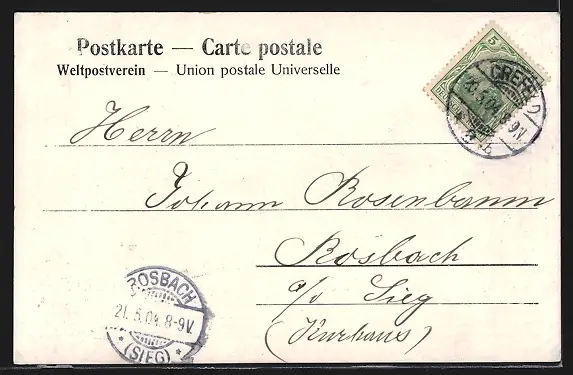 Postkarte — Carte postale
Weltpostverein — Union postale Universelle
5
CREFELD
5.04. 8-9V.
Herrn
Johann Rosenbaum
Rosbach
a/d Sieg
(Kurhaus)
ROSBACH
21.5.04. 8-9V.
* (SIEG) *